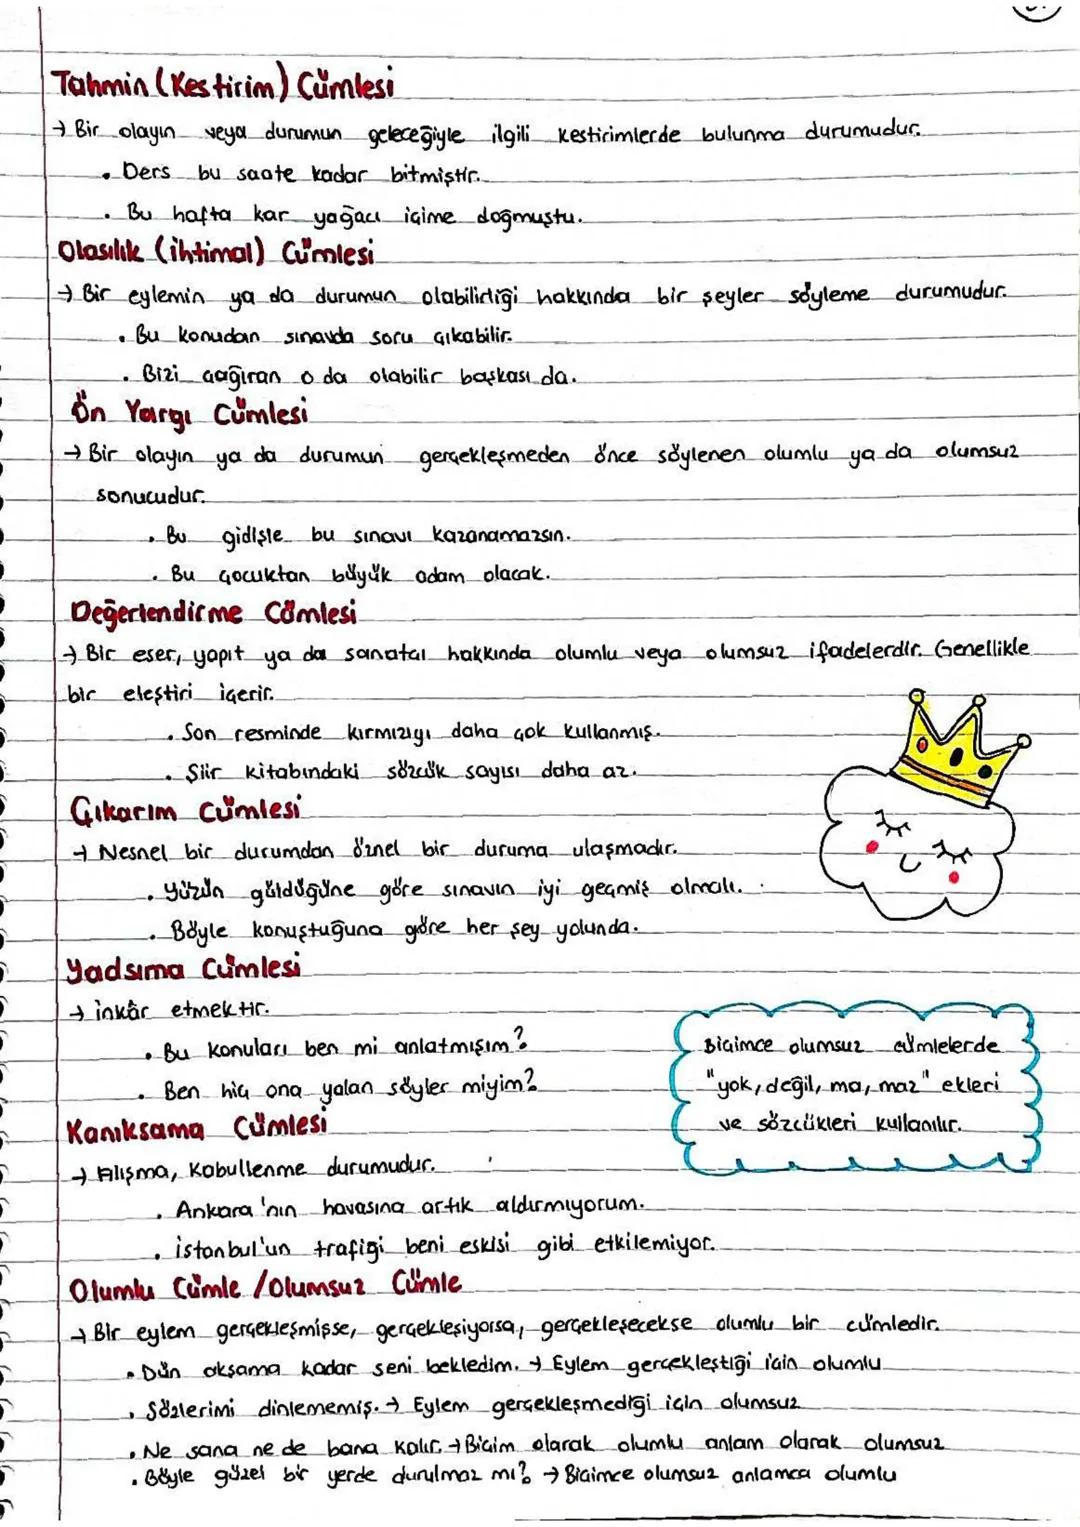 Tahmin (Kestirim) Cümlesi
→ Bir olayın veya durumun geleceğiyle ilgili kestirimlerde bulunma durumudur.
• Ders bu saate kadar bitmiştir.
• Bu hafta kar yağacı içime doğmuştu.
Olasılık (ihtimal) Cümlesi
→ Bir eylemin ya da durumun olabilirliği hakkında bir şeyler söyleme durumudur.
• Bu konudan sınavda soru çıkabilir.
• Bizi çağıran o da olabilir başkası da.
Ön Yargı Cümlesi
→ Bir olayın ya da durumun gerçekleşmeden önce söylenen olumlu ya da olumsuz
sonucudur.
• Bu gidişle bu sınavı kazanamazsın.
• Bu çocuktan büyük adam olacak.
Değerlendirme Cümlesi
→ Bir eser, yapıt ya da sanatçı hakkında olumlu veya olumsuz ifadelerdir. Genellikle
bir eleştiri içerir.
• Son resminde kırmızıyı daha çok kullanmış.
• Şiir kitabındaki sözcük sayısı daha az.
Çıkarım Cümlesi
→ Nesnel bir durumdan öznel bir duruma ulaşmadır.
• Yüzün güldüğüne göre sınavın iyi geçmiş olmalı.
• Böyle konuştuğuna göre her şey yolunda.
Yadsıma Cümlesi
→ inkâr etmektir.
• Bu konuları ben mi anlatmışım?
• Ben hiç ona yalan söyler miyim?
Biçimce olumsuz cümlelerde
"yok, değil, ma, maz" ekleri
ve sözcükleri kullanılır.
Kanıksama Cümlesi
→ Alışma, Kabullenme durumudur.
• Ankara'nın havasına artık aldırmıyorum.
• istanbul'un trafiği beni eskisi gibi etkilemiyor.
Olumlu Cümle / Olumsuz Cümle
→ Bir eylem gerçekleşmişse, gerçekleşiyorsa, gerçekleşecekse olumlu bir cümledir.
• Dün akşama kadar seni bekledim. → Eylem gerçekleştiği için olumlu
• Sözlerimi dinlememiş. → Eylem gerçekleşmediği için olumsuz
• Ne sana ne de bana kalır. → Biçim olarak olumlu anlam olarak olumsuz
• Böyle güzel bir yerde durulmaz mı? → Biçimce olumsuz anlamca olumlu